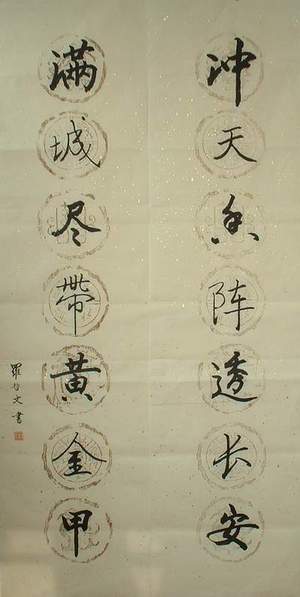 冲天香阵透长安
满城尽带黄金甲
罗哲文书